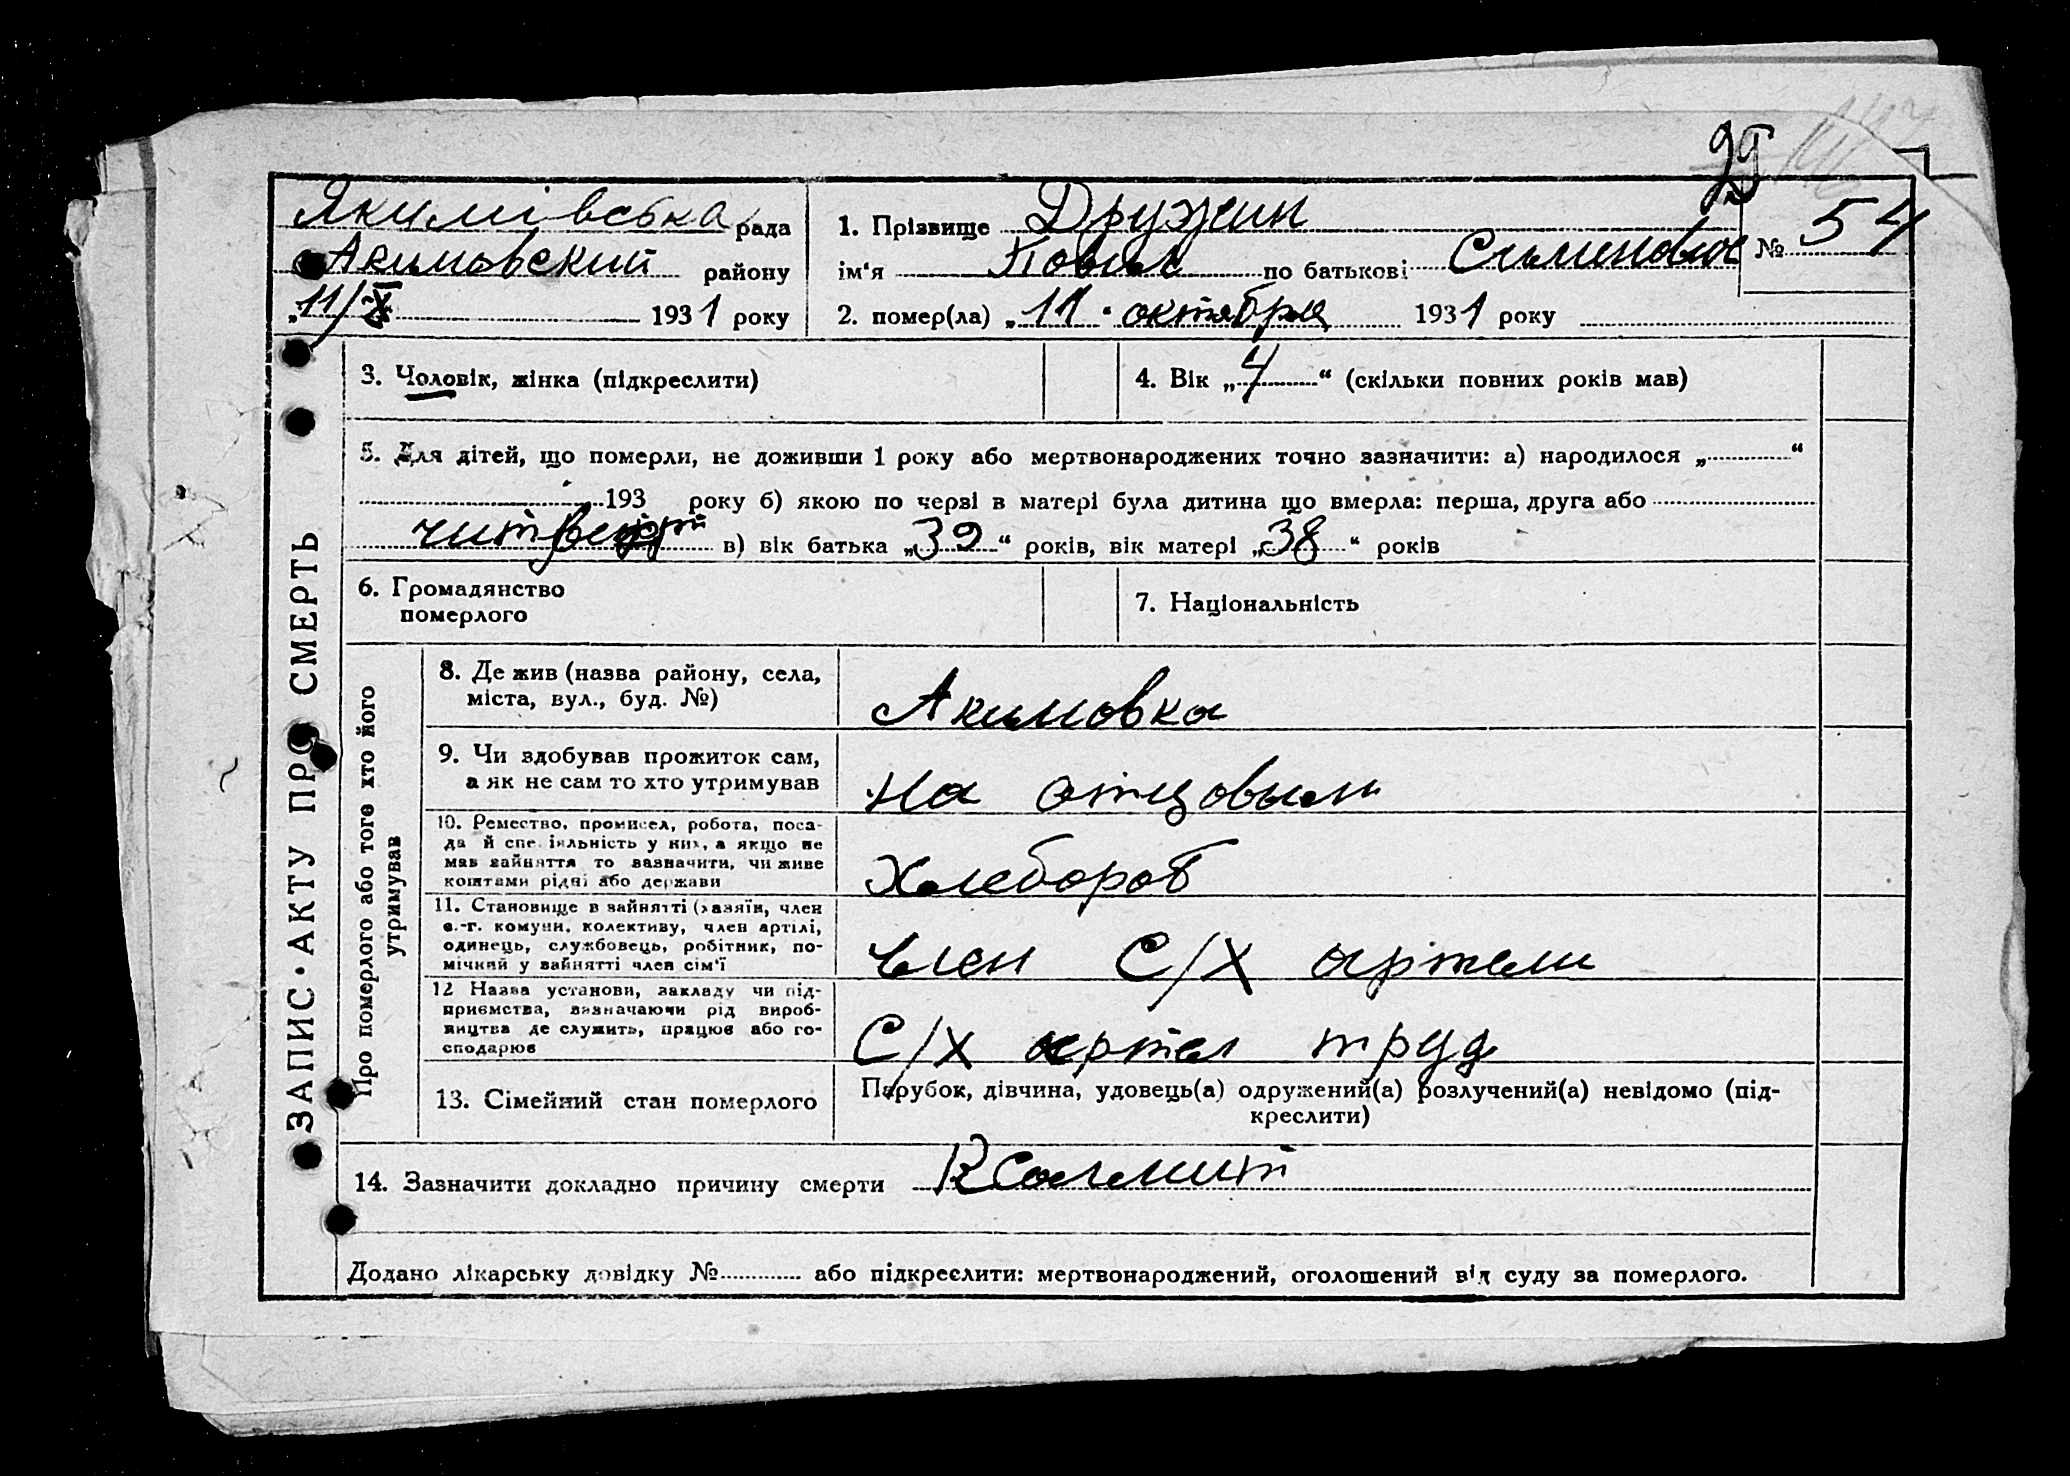 29
Якимівська рада
Акимовский району
„11/X 1931 року
1. Прізвище Дружин
ім'я Павил по батькові Сименович
№ 54
2. помер(ла) „11" октября 1931 року
ЗАПИС·АКТУ ПРО СМЕРТЬ
3. Чоловік, жінка (підкреслити)
4. Вік „4" (скільки повних років мав)
5. Для дітей, що померли, не доживши 1 року або мертвонароджених точно зазначити: а) народилося „ "
193 року б) якою по черзі в матері була дитина що вмерла: перша, друга або
в) вік батька „39" років, вік матері „38" років
6. Громадянство
померлого
7. Національність
Про померлого або того хто його
утримував
8. Де жив (назва району, села,
міста, вул., буд. №)
Акимовка
9. Чи здобував прожиток сам,
а як не сам то хто утримував
на отцовым
10. Ремество, промисел, робота, поса-
да й спеціяльність у них, а якщо не
мав зайняття то зазначити, чи живе
коштами рідні або держави
Хлебороб
11. Становище в зайнятті (хазяїн, член
с.-г. комуни, колективу, член артілі,
одинець, службовець, робітник, по-
мічний у зайнятті член сім'ї
член С/Х артели
12 Назва установи, закладу чи під-
приємства, зазначаючи рід вироб-
ництва де служить, працює або го-
сподарює
С/Х артел труд
13. Сімейний стан померлого
Парубок, дівчина, удовець(а) одружений(а) розлучений(а) невідомо (під-
креслити)
14. Зазначити докладно причину смерти
Додано лікарську довідку № або підкреслити: мертвонароджений, оголошений від суду за померлого.